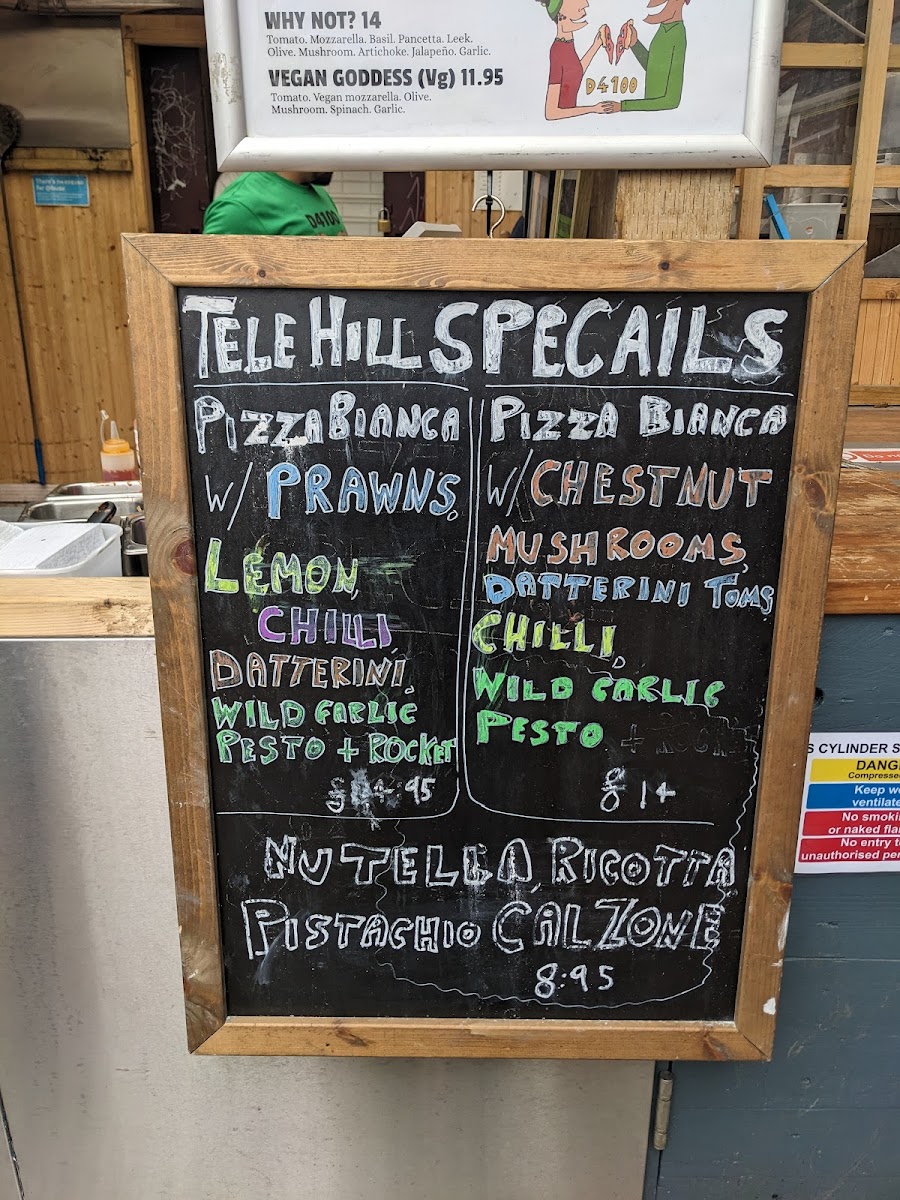 WHY NOT? 14
Tomato. Mozzarella. Basil. Pancetta. Leek.
Olive. Mushroom. Artichoke. Jalapeño. Garlic.
VEGAN GODDESS (Vg) 11.95
Tomato. Vegan mozzarella. Olive.
Mushroom. Spinach. Garlic.
D4100
D4100
TELEHILL SPECAILS
PIZZA BIANCA
W/ PRAWNS,
LEMON,
CHILLI,
DATTERINI,
WILD GARLIC
PESTO + ROCKET
£14.95
PIZZA BIANCA
W/ CHESTNUT
MUSHROOMS,
DATTERINI TOMS,
CHILLI,
WILD GARLIC
PESTO
£14
NUTELLA, RICOTTA
PISTACHIO CALZONE
8.95
S CYLINDER S
DANG
Compresse
Keep we
ventilate
No smoki
or naked fla
No entry t
unauthorised per